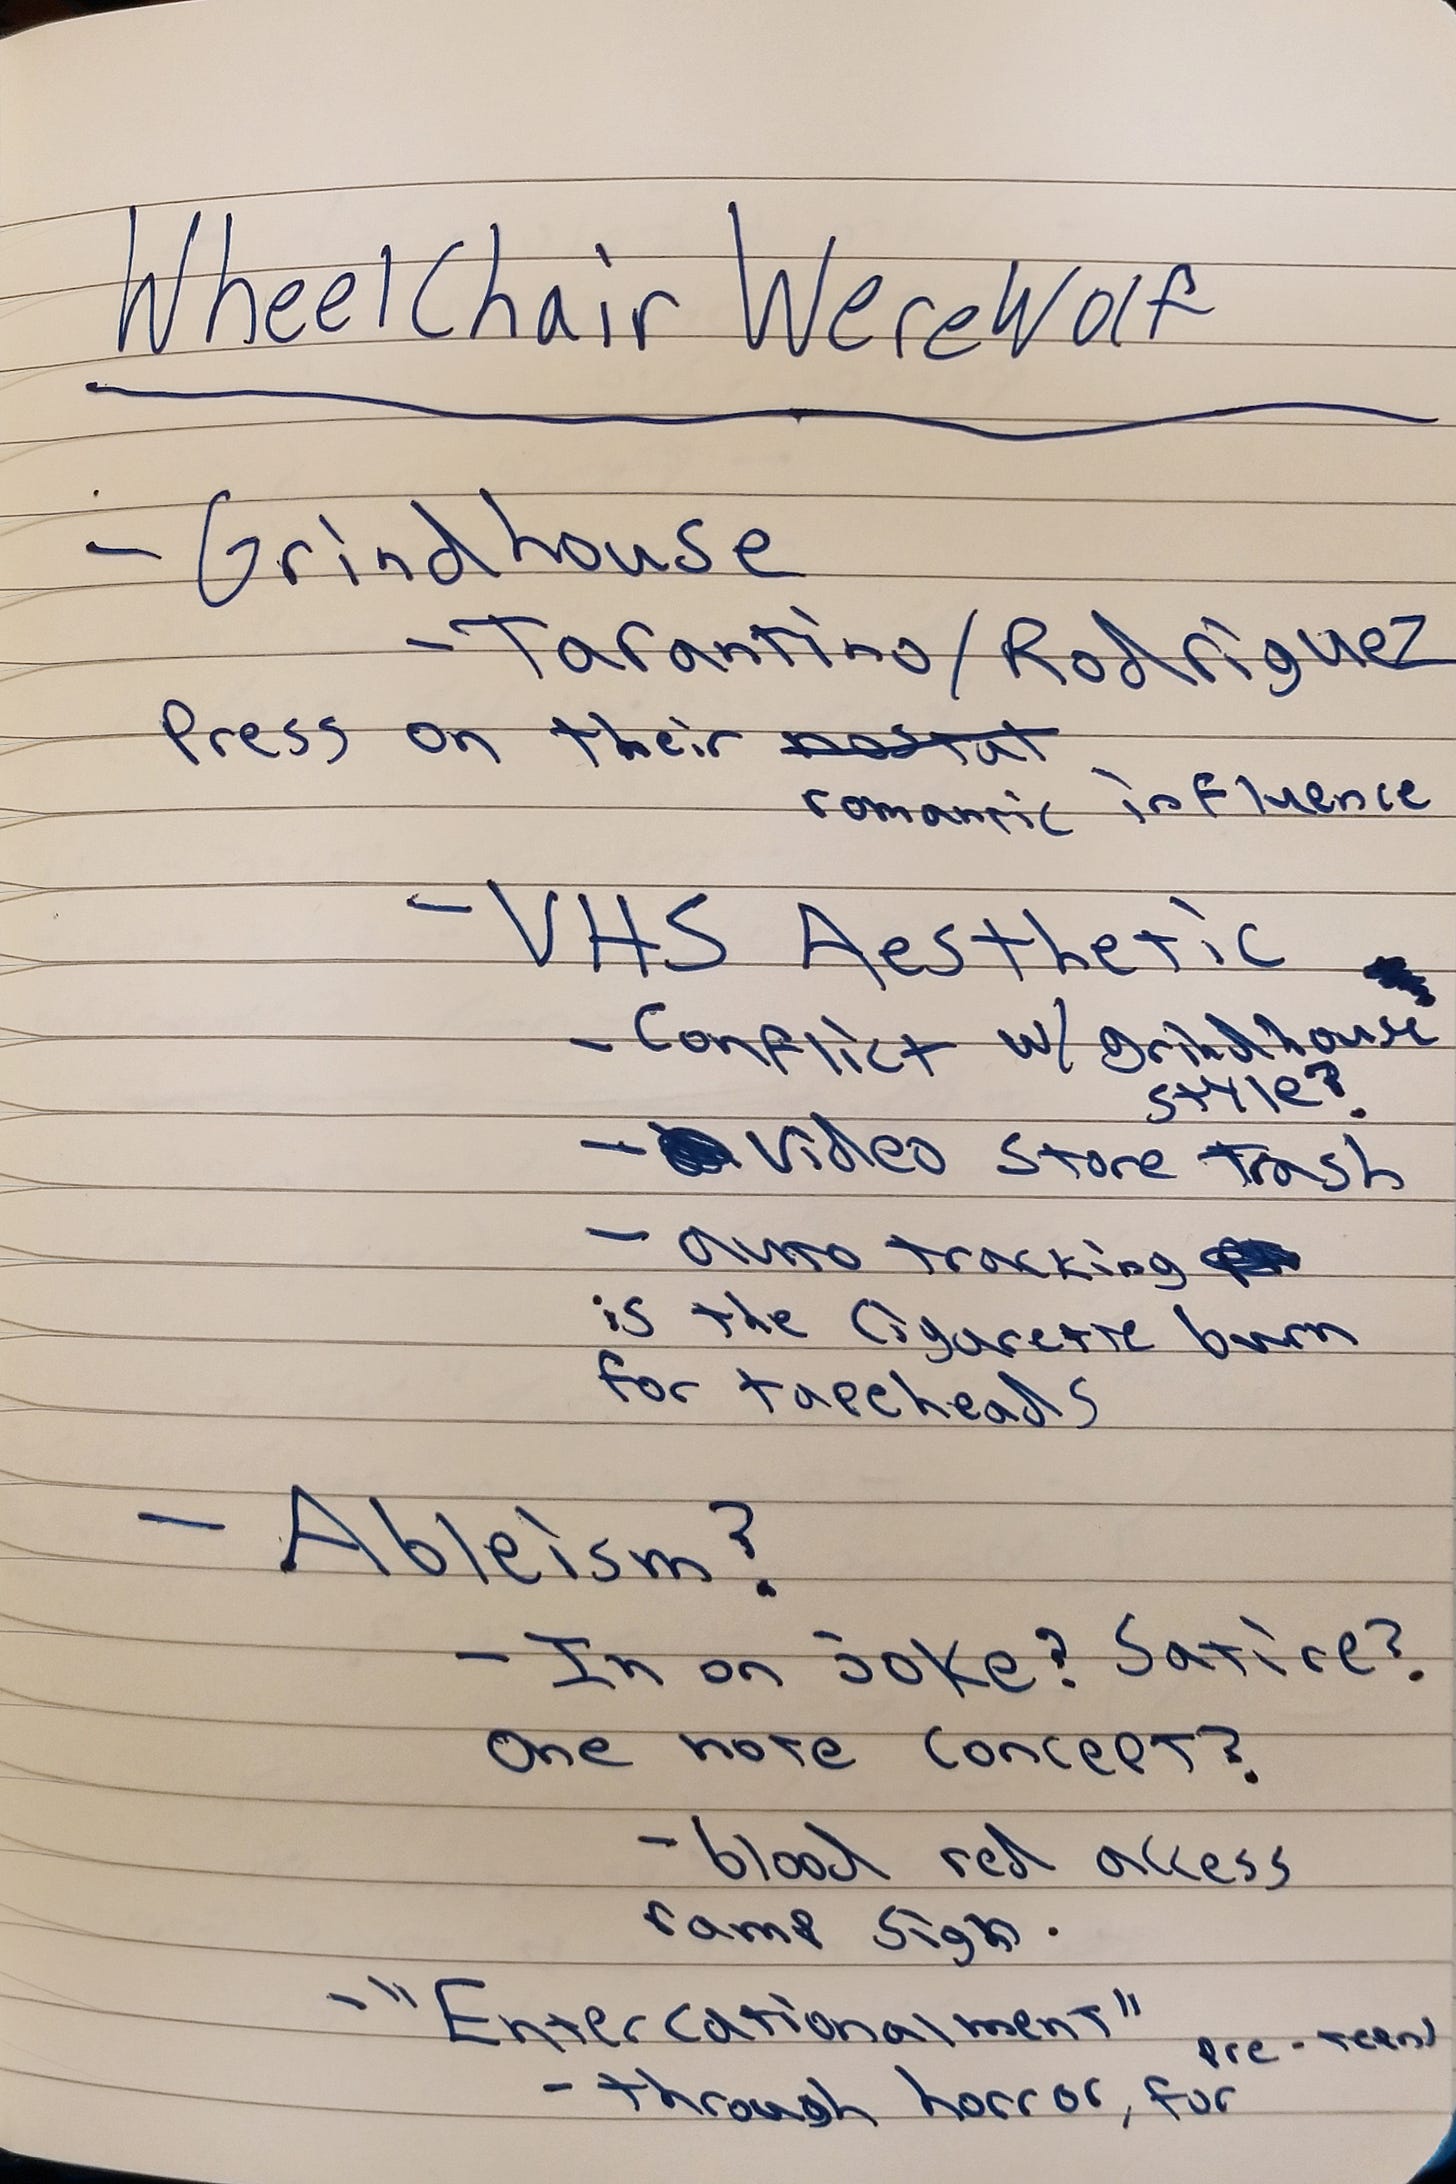 WheelChair WereWolf
- Grindhouse
- Tarantino/Rodriguez
Press on their
romantic influence
- VHS Aesthetic
- Conflict w/ grindhouse
style?
- video store trash
- auto tracking
is the cigarette burn
for tapeheads
- Ableism?
- In on joke? Satire?
One note concept?
- blood red access
ramp sign.
- "Entercationalment"
pre-teens
- through horror, for